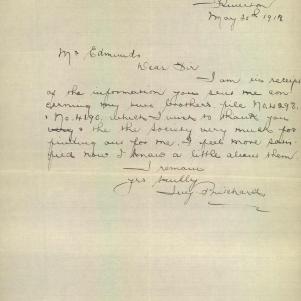 Riverton
May 30th 1918
Mr Edmunds
Dear Sir
I am in receipt
of the information you sent me con
cerning my two brothers file No 4298.
& No. 4190. which I wish to thank you
& the the Society very much for
finding out for me. I feel more satis
fied now I know a little about them
I remain
yrs truly
Prichard